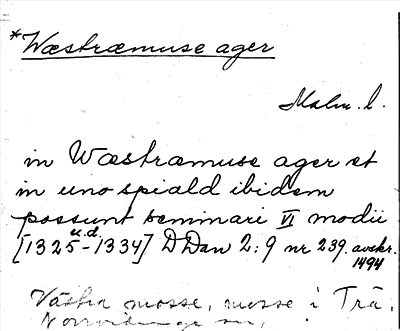 *Wæstræmuse ager
Malm. l.
in Wæstræmuse ager et
in uno spiald ibidem
possunt seminari VI modii
u.d.
[1325-1334] DDan 2:9 nr 239. avskr.
1494
Västra mosse, mosse i Trä.